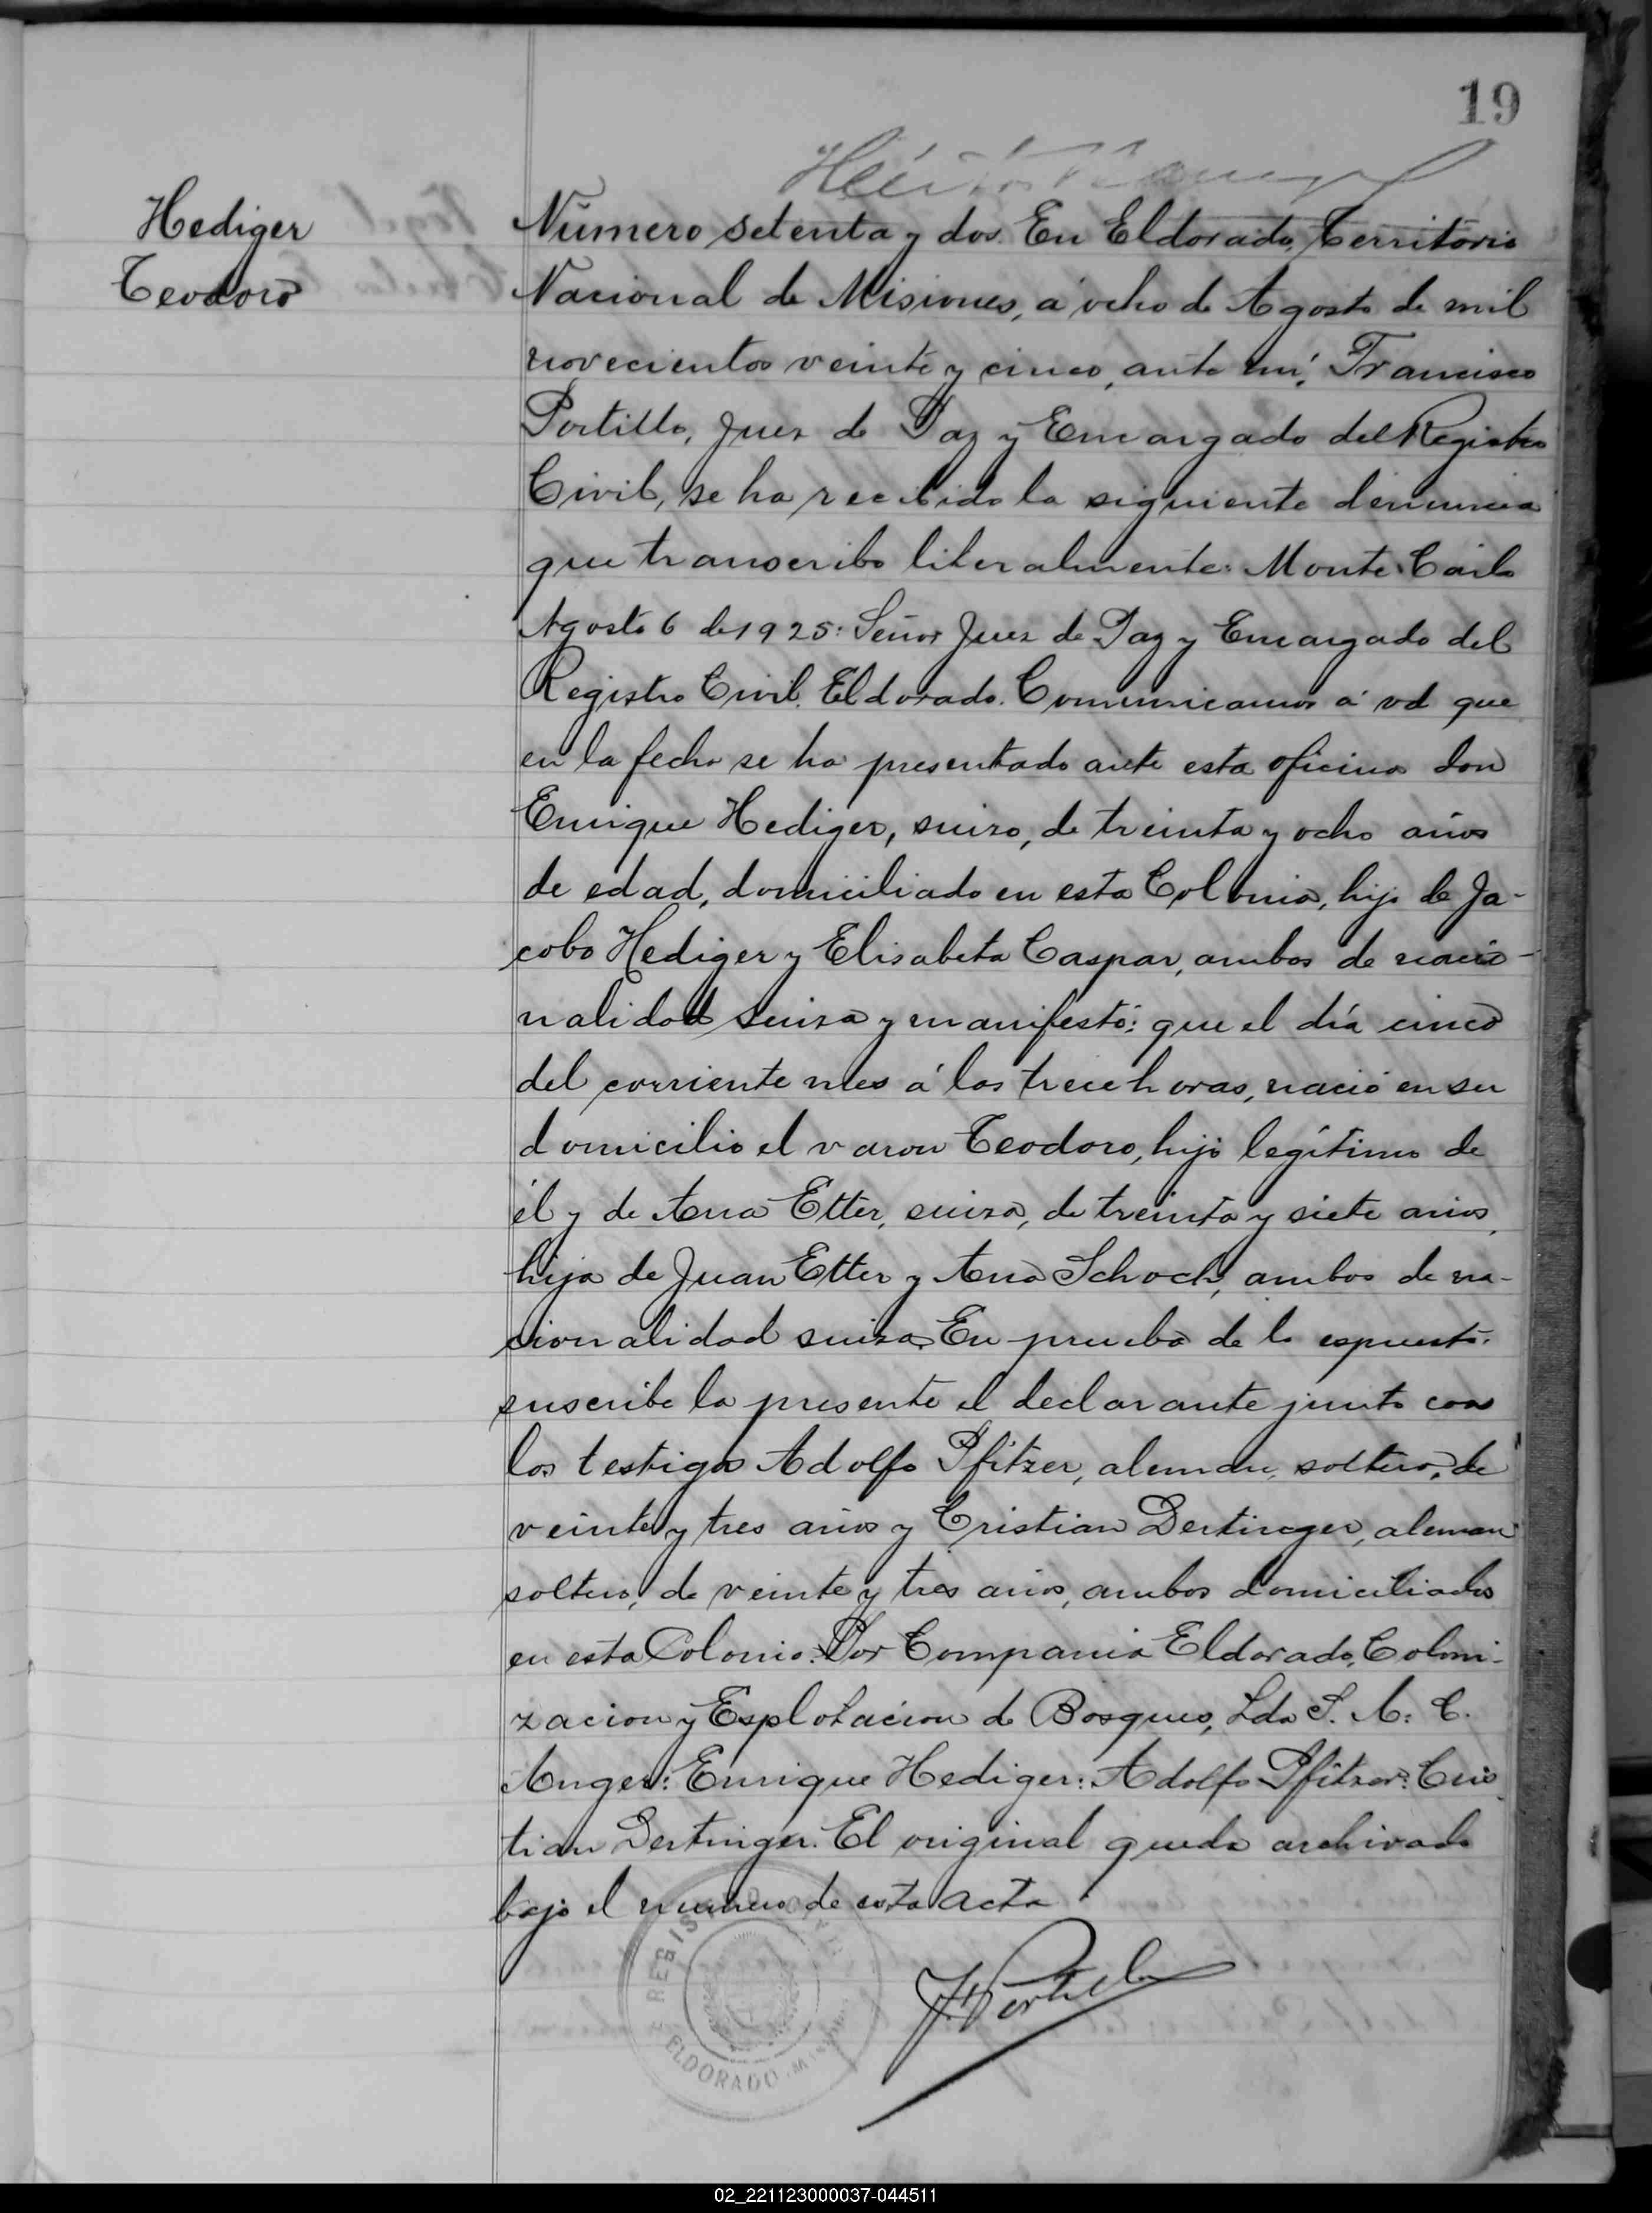 19
Hediger
Teodoro
Número setenta y dos. En Eldorado, Territorio
Nacional de Misiones, á ocho de Agosto de mil
novecientos veinte y cinco, ante mí, Francisco
Portillo, Juez de Paz y Encargado del Registro
Civil, se ha recibido la siguiente denuncia
que transcribo literalmente: Monte Carlo
Agosto 6 de 1925: Señor Juez de Paz y Encargado del
Registro Civil. Eldorado. Comunicamos á vd que
en la fecha se ha presentado ante esta oficina don
Enrique Hediger, suizo, de treinta y ocho años
de edad, domiciliado en esta Colonia, hijo de Ja-
cobo Hediger y Elisabeta Caspar, ambos de nacio-
nalidad suiza y manifestó: que el día cinco
del corriente mes á las trece horas, nació en su
domicilio el varon Teodoro, hijo legítimo de
él y de Ana Etter, suiza, de treinta y siete años,
hija de Juan Etter y Ana Schoch, ambos de na-
cionalidad suiza. En prueba de lo espuesto.
suscribe la presente el declarante junto con
los testigos Adolfo Pfitzer, aleman, soltero, de
veinte y tres años y Cristian Dertinger, aleman
soltero, de veinte y tres años, ambos domiciliados
en esta Colonia. Por Compania Eldorado, Coloni-
zacion y Esplotacion de Bosques, Lda S. A. C.
Anger: Enrique Hediger: Adolfo Pfitzer: Cris
tian Dertinger. El original queda archivado
bajo el numero de esta acta
F. Portillo
REGISTRO CIVIL
ELDORADO - Misiones
02_221123000037-044511